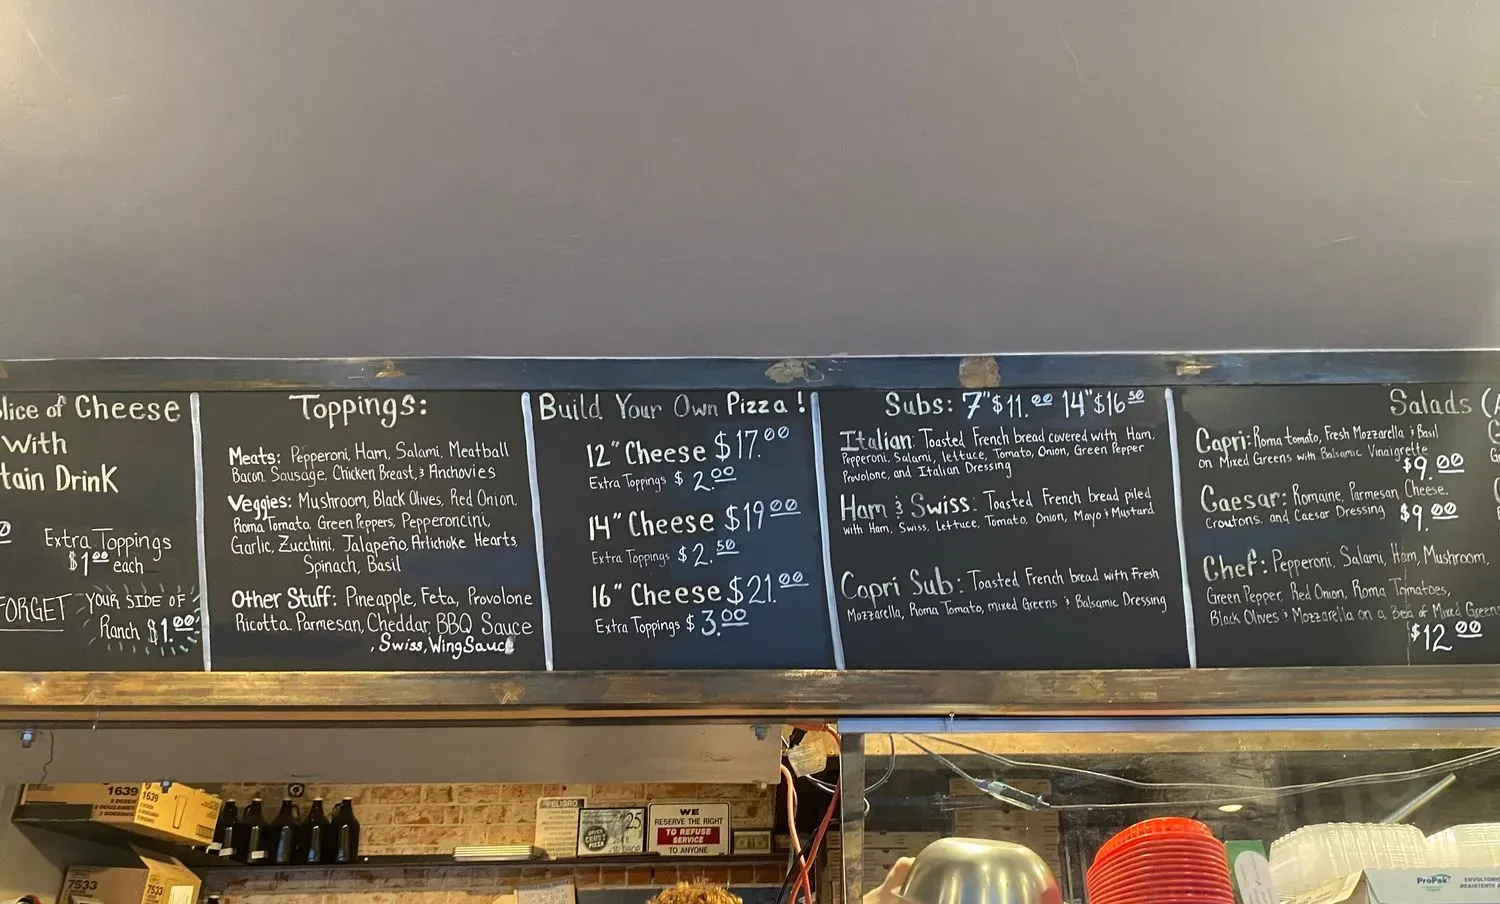 lice of Cheese
With
tain Drink
Extra Toppings
$1.00 each
FORGET YOUR SIDE OF
Ranch $1.00
Toppings:
Meats: Pepperoni, Ham, Salami, Meatball
Bacon, Sausage, Chicken Breast, & Anchovies
Veggies: Mushroom, Black Olives, Red Onion,
Roma Tomato, Green Peppers, Pepperoncini,
Garlic, Zucchini, Jalapeño, Artichoke Hearts,
Spinach, Basil
Other Stuff: Pineapple, Feta, Provolone
Ricotta. Parmesan, Cheddar, BBQ Sauce
, Swiss, Wing Sauce
Build Your Own Pizza!
12" Cheese $17.00
Extra Toppings $2.00
14" Cheese $19.00
Extra Toppings $2.50
16" Cheese $21.00
Extra Toppings $3.00
Subs: 7" $11.00 14" $16.50
Italian: Toasted French bread covered with Ham.
Pepperoni, Salami, lettuce, Tomato, Onion, Green Pepper
Provolone, and Italian Dressing
Ham & Swiss: Toasted French bread piled
with Ham, Swiss, Lettuce, Tomato, Onion, Mayo & Mustard
Capri Sub: Toasted French bread with Fresh
Mozzarella, Roma Tomato, mixed Greens & Balsamic Dressing
Salads (
Capri: Roma tomato, Fresh Mozzarella & Basil
on Mixed Greens with Balsamic Vinaigrette
$9.00
Caesar: Romaine, Parmesan Cheese,
Croutons, and Caesar Dressing $9.00
Chef: Pepperoni, Salami, Ham, Mushroom,
Green Pepper, Red Onion, Roma Tomatoes,
Black Olives & Mozzarella on a Bed of Mixed Greens
$12.00
1639
1639
7533
7533
PELIGRO
25
WE
RESERVE THE RIGHT
TO REFUSE
SERVICE
TO ANYONE
ProPak